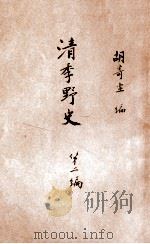 胡寄尘 編
清季野史
第二編